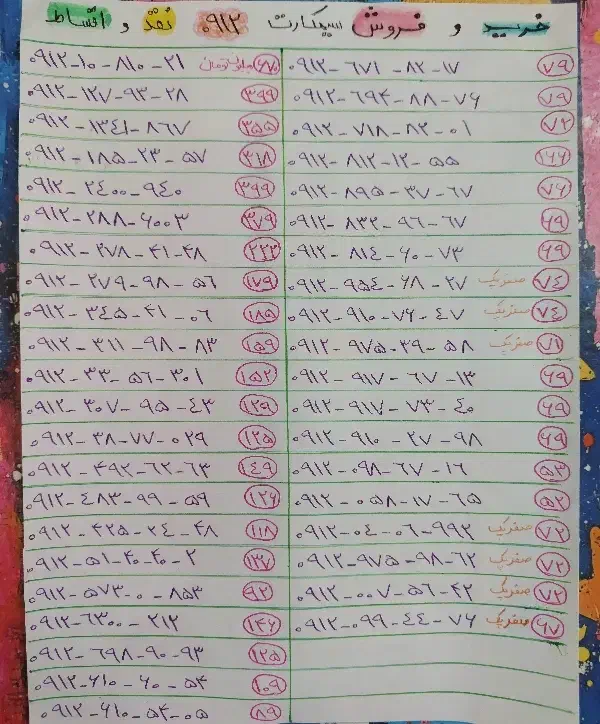 خرید و فروش سیمکارت ۰۹۱۲ نقد و اقساط
۰۹۱۲-۶۷۱-۸۲-۱۷ ۷۹
۰۹۱۲-۶۹۴-۸۸-۷۶ ۷۹
۰۹۱۲-۷۱۸-۸۲-۰۱ ۷۲
۰۹۱۲-۸۱۲-۱۲-۵۵ ۱۶۶
۰۹۱۲-۸۹۵-۳۷-۶۷ ۷۶
۰۹۱۲-۸۳۲-۹۶-۶۷ ۶۹
۰۹۱۲-۸۱۴-۶۰-۷۳ ۶۹
۰۹۱۲-۹۵۴-۶۸-۲۷ صفریک ۷۴
۰۹۱۲-۹۱۰-۷۶-۴۷ صفریک ۷۴
۰۹۱۲-۹۷۵-۲۹-۵۸ صفریک ۷۱
۰۹۱۲-۹۱۷-۶۷-۱۳ ۶۹
۰۹۱۲-۹۱۷-۷۳-۴۰ ۶۹
۰۹۱۲-۹۱۰-۲۷-۹۸ ۶۹
۰۹۱۲-۰۹۸-۶۷-۱۶ ۵۳
۰۹۱۲-۰۵۸-۱۷-۶۵ ۵۲
۰۹۱۲-۰۴-۰۶-۹۹۲ صفریک ۷۲
۰۹۱۲-۹۷۵-۹۸-۶۲ صفریک ۷۲
۰۹۱۲-۰۰۷-۵۶-۴۲ صفریک ۷۲
۰۹۱۲-۰۹۹-۴۴-۷۶ صفریک ۶۷
۰۹۱۲-۱۰-۸۱۰-۲۱ ۶۷۰ میلیون تومان
۰۹۱۲-۱۲۷-۹۳-۲۸ ۳۹۹
۰۹۱۲-۱۳۴۱-۸۶۷ ۳۵۵
۰۹۱۲-۱۸۵-۲۳-۵۷ ۳۱۸
۰۹۱۲-۲۴۰۰-۹۴۰ ۳۹۹
۰۹۱۲-۲۸۸-۶۰۰۳ ۳۷۹
۰۹۱۲-۲۷۸-۴۱-۴۸ ۲۲۲
۰۹۱۲-۲۷۹-۹۸-۵۶ ۱۷۹
۰۹۱۲-۳۴۵-۴۱-۰۶ ۱۸۵
۰۹۱۲-۳۱۱-۹۸-۸۳ ۱۵۹
۰۹۱۲-۳۳-۵۶-۳۰۱ ۱۵۲
۰۹۱۲-۳۰۷-۹۵-۴۳ ۱۲۹
۰۹۱۲-۳۸-۷۷-۰۲۹ ۱۲۵
۰۹۱۲-۴۹۲-۶۲-۶۳ ۱۴۹
۰۹۱۲-۴۸۳-۹۹-۵۹ ۱۲۶
۰۹۱۲-۴۲۵-۲۴-۴۸ ۱۱۸
۰۹۱۲-۵۱-۴۰-۴۰-۲ ۱۳۷
۰۹۱۲-۵۷۳-۰-۸۵۳ ۹۲
۰۹۱۲-۶۳۰۰-۲۱۲ ۱۴۶
۰۹۱۲-۶۹۸-۹۰-۹۳ ۱۲۵
۰۹۱۲-۶۱۰-۶۰-۵۴ ۱۰۹
۰۹۱۲-۶۱۰-۵۴-۰۵ ۸۹